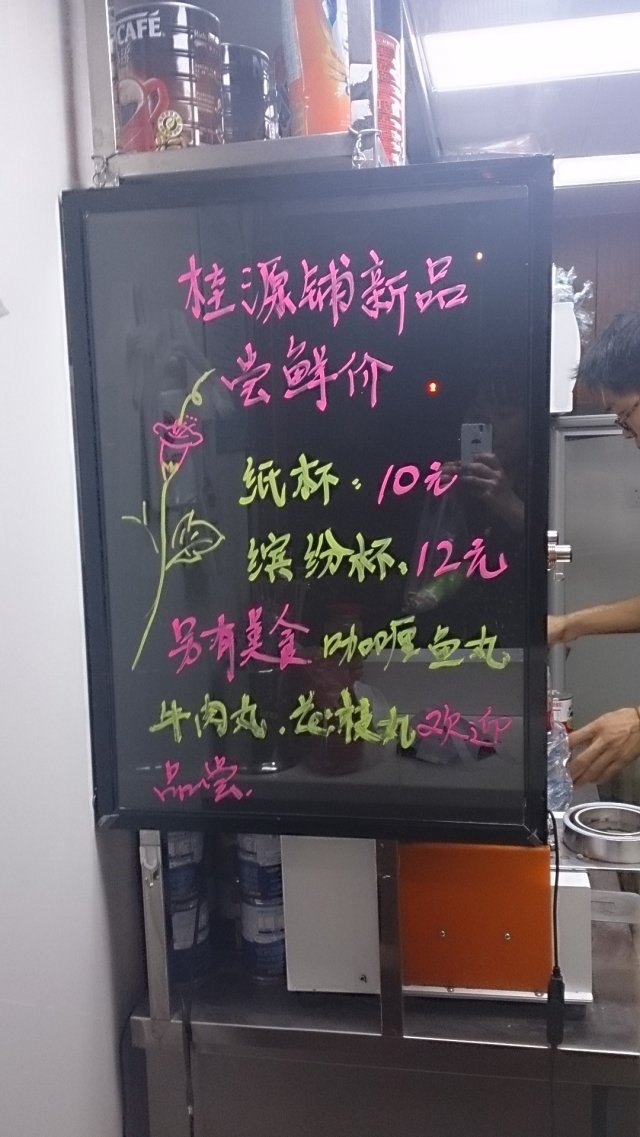 CAFÉ
桂源铺新品
尝鲜价
纸杯：10元
缤纷杯：12元
另有美食 咖喱鱼丸
牛肉丸．花枝丸欢迎
品尝．